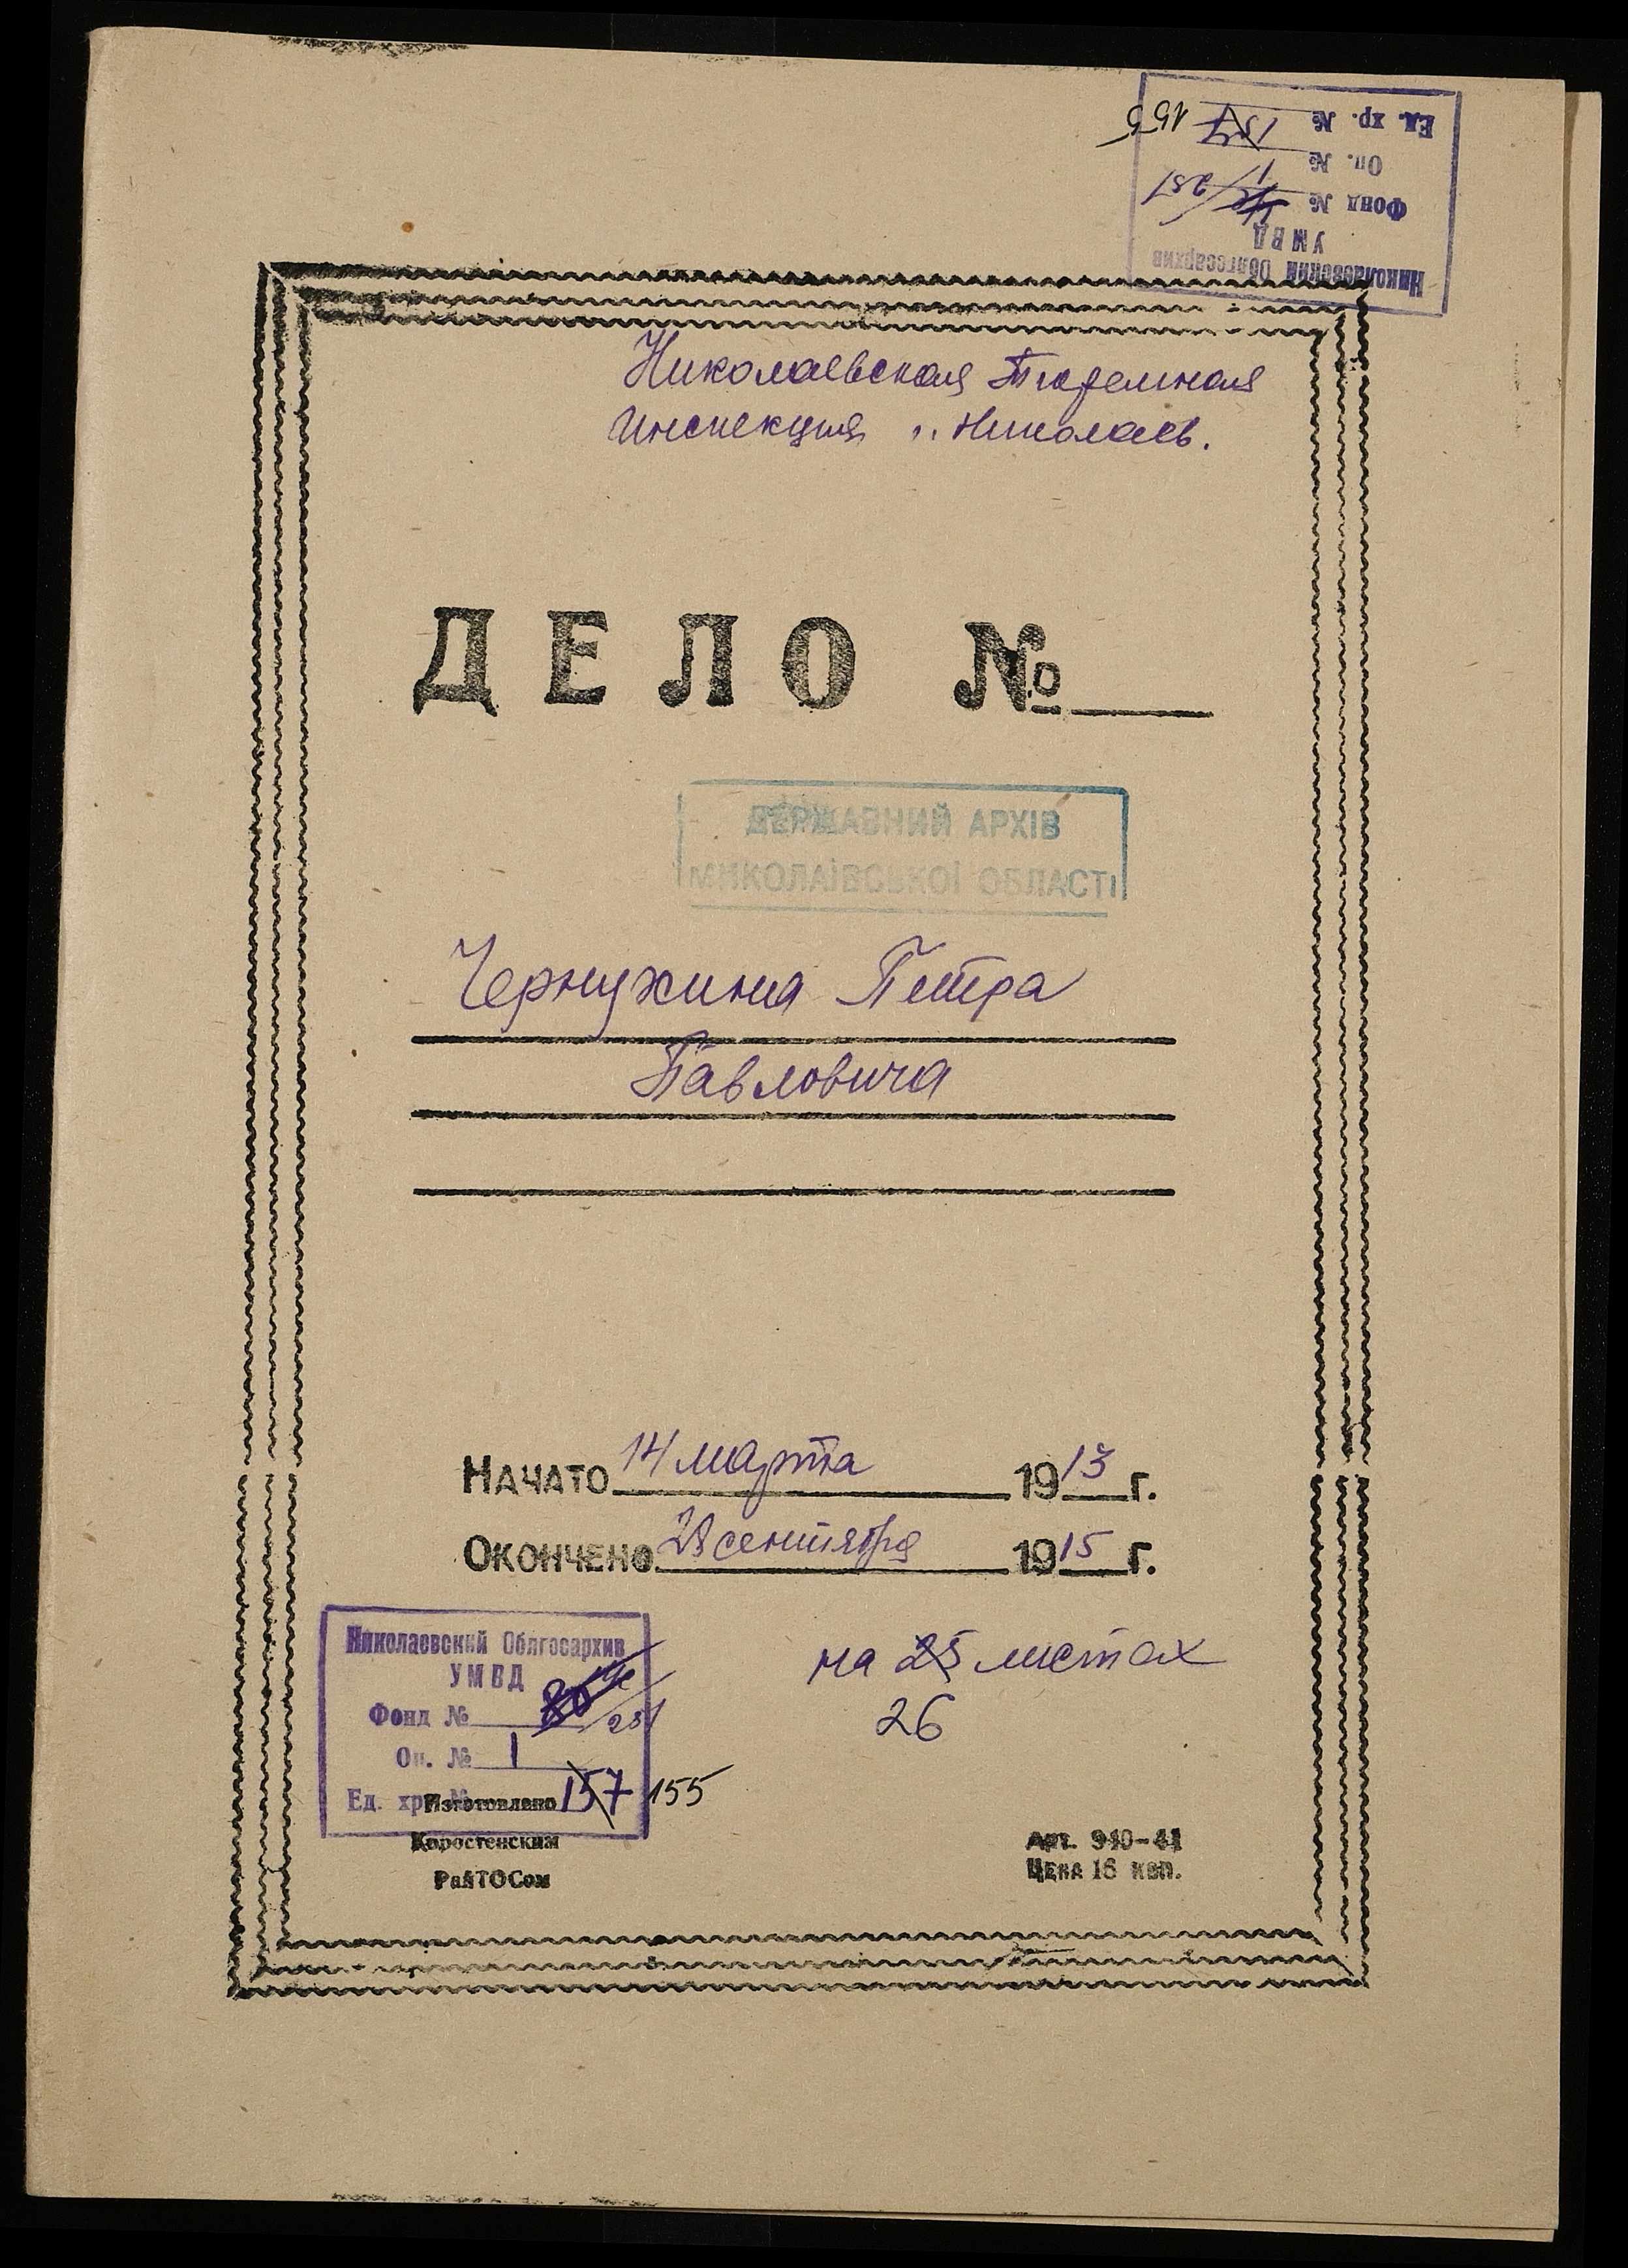 Николаевский Облгосархив
УМВД
Фонд № 251
Оп. № 1
Ед. хр. № 157 155
Николаевская Тюремная
Инспекция г. Николаев.
ДЕЛО №
ДЕРЖАВНИЙ АРХІВ
МИКОЛАЇВСЬКОЇ ОБЛАСТІ
Чернухина Петра
Павловича
НАЧАТО 14 марта 1913 г.
ОКОНЧЕНО 28 сентября 1915 г.
на 25 листах
26
Николаевский Облгосархив
УМВД
Фонд № 251
Оп. № 1
Ед. хр. № 157 155
Изготовлено
Коростенским
РайТОСом
Арт. 940-41
ЦЕНА 16 коп.